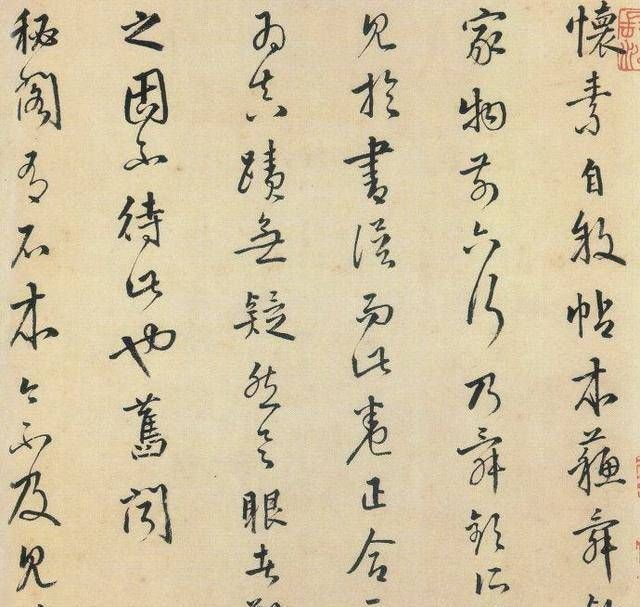 懷素自敘帖本蘇舜
家物前六行乃舜欽所
見於書譜而此卷正合
為真蹟無疑然具眼者
之固不待此也舊聞
秘閣有石本今不及見